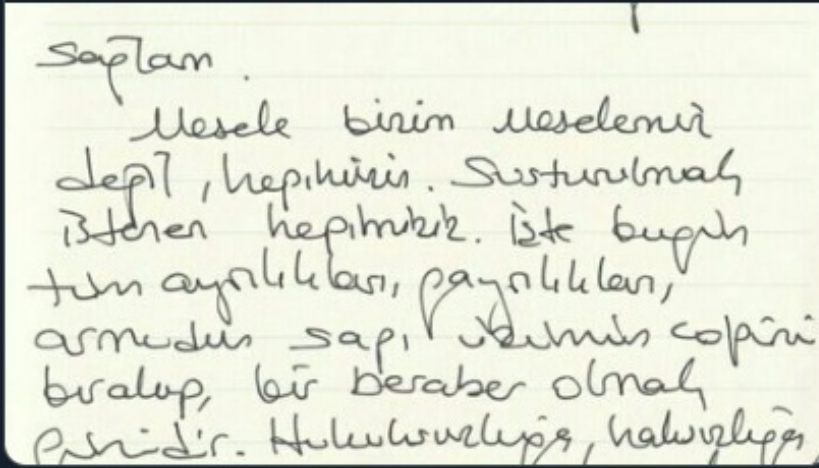 sağlam.
Mesele bizim meselemiz
değil, hepimizin. Susturulmak
istenen hepimiziz. İşte bugün
tüm ayrılıkları, gayrılıkları,
armudun sapı üzümün çöpünü
bırakıp, bir beraber olmak
günüdür. Hukuksuzluğa, haksızlığa